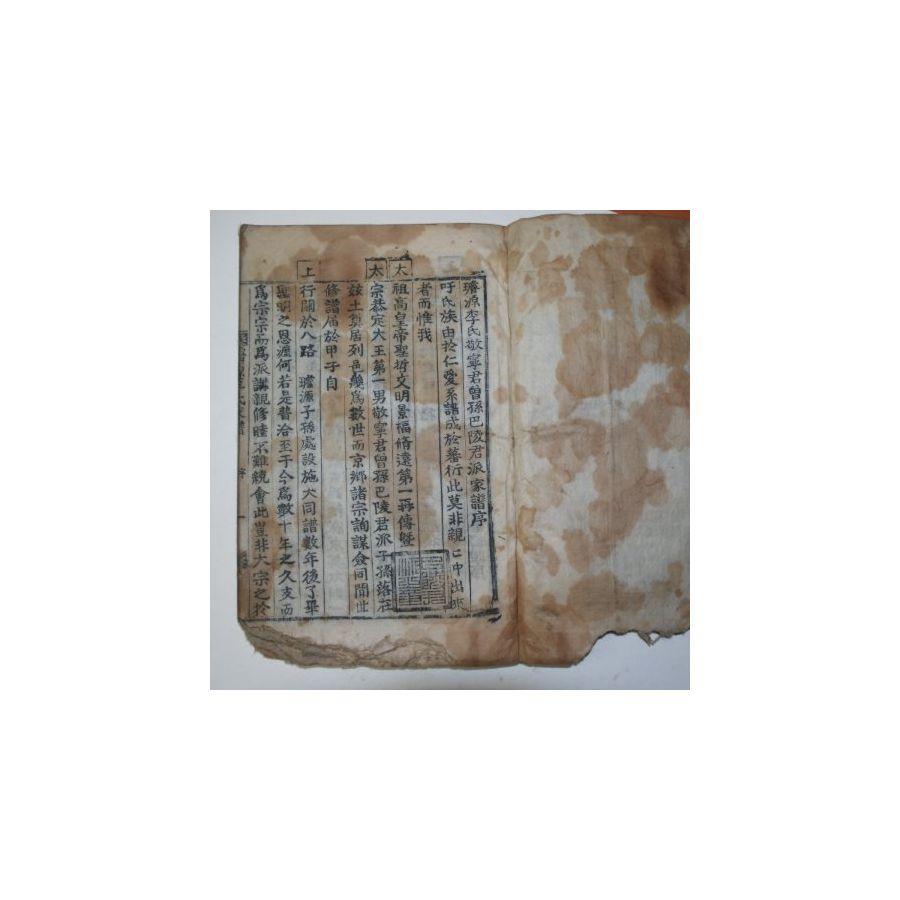 璿源李氏敬寧君曾孫巴陵君派家譜序
吁氏族由於仁愛系譜成於蕃衍此莫非親亡中出
者而惟我
太祖高皇帝聖哲文明景福脩遠第一再傳曁
太宗恭定大王第一男敬寧君曾孫巴陵君派子孫落在
玆土奠居列邑幾爲數世而京鄉諸宗詢謀僉同開
修譜届於甲子自
上行關於八路 璿源子孫處設施大同譜數年後了畢
明之恩涯何若是普洽至于今爲數十年之久支而
爲宗宗而爲派講親修睦不難統會此豈非大宗之於